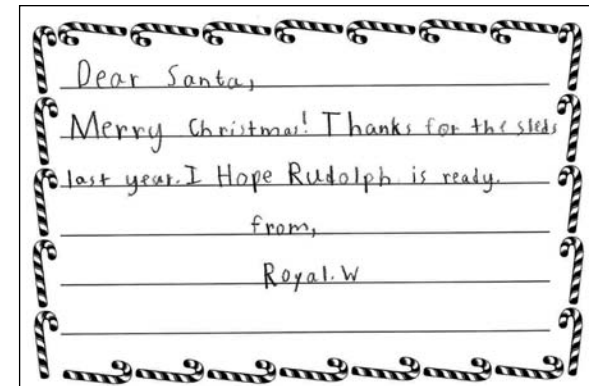 Dear Santa,
Merry Christmas! Thanks for the sleds
last year. I Hope Rudolph is ready.
from,
Royal.W